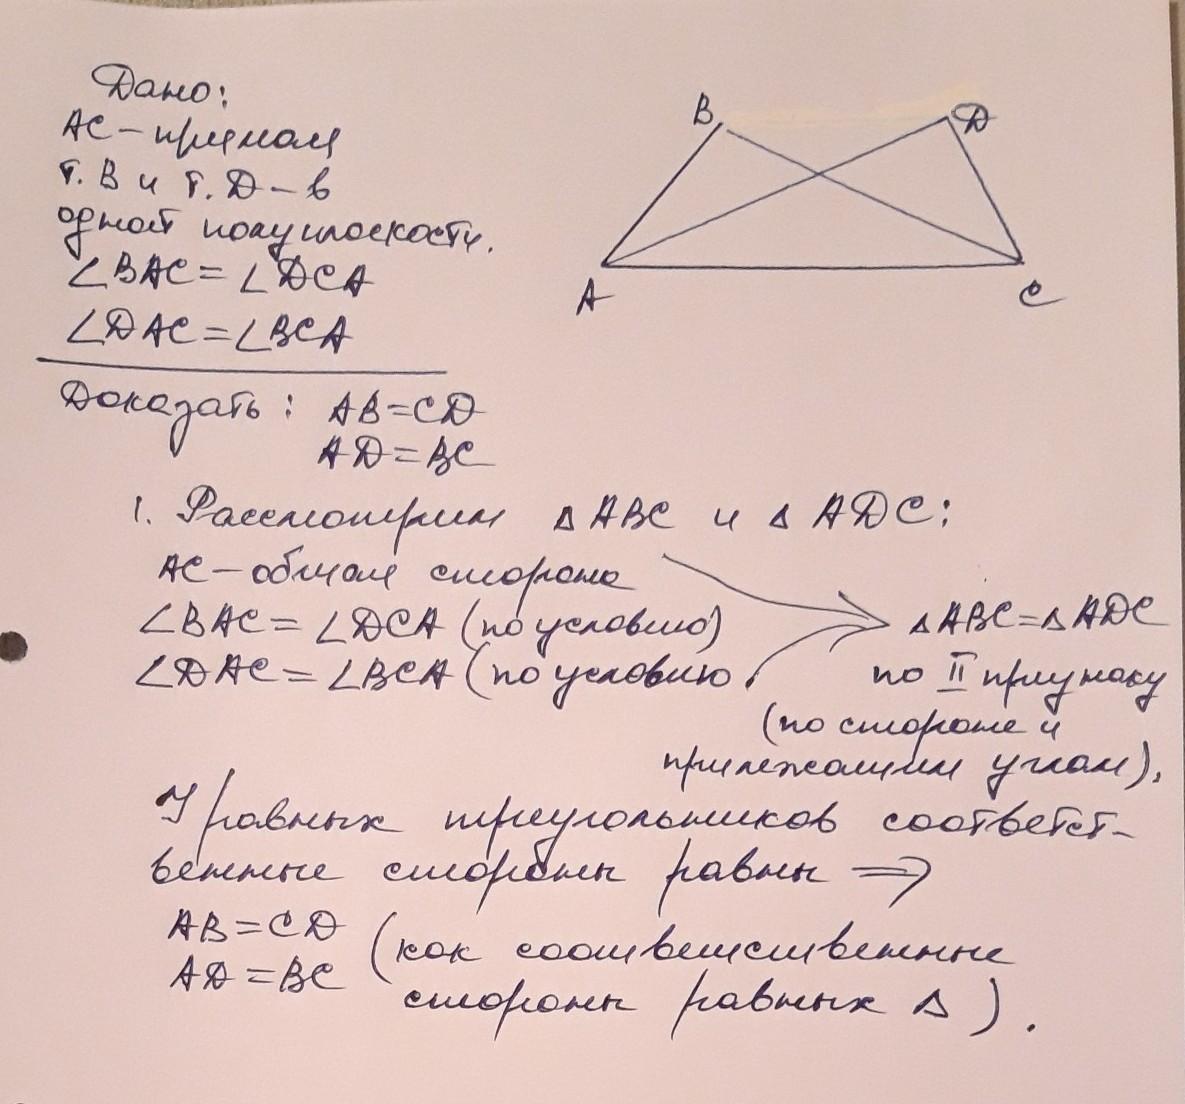 Дано:
АС – прямая
т. В и т. D – в
одной полуплоскости.
∠BAC = ∠DCA
∠DAC = ∠BCA
Доказать: AB = CD
AD = BC
B
D
A
C
1. Рассмотрим △ ABC и △ ADC:
AC – общая сторона
∠BAC = ∠DCA (по условию)
∠DAC = ∠BCA (по условию
△ABC = △ADC
по II признаку
(по стороне и
прилежащим углам).
У равных треугольников соответст-
венные стороны равны ⇒
AB = CD
AD = BC
(как соответственные
стороны равных △).